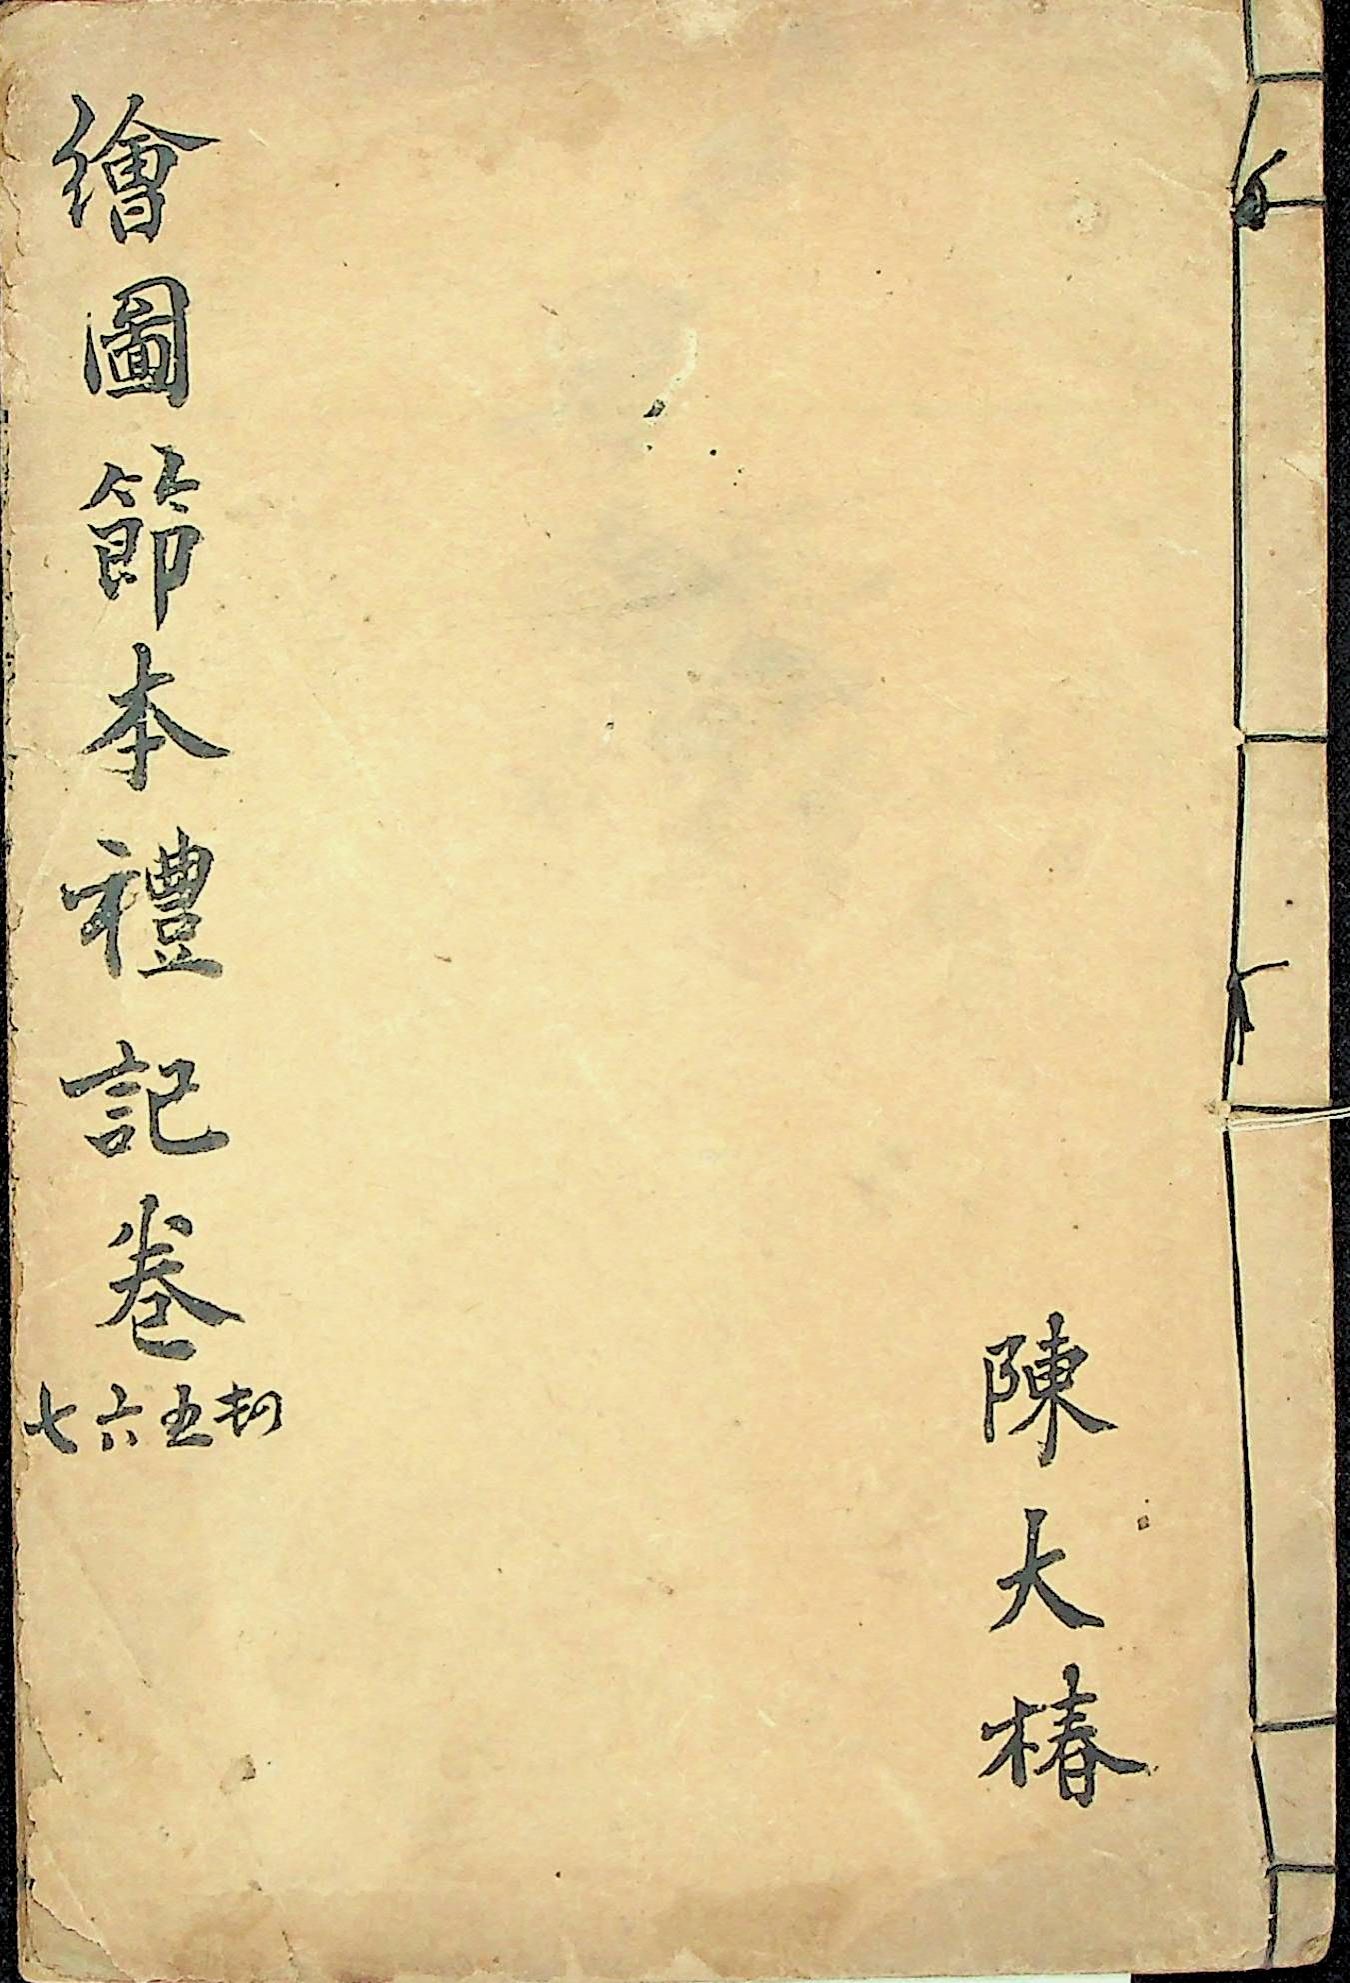 繪圖節本禮記卷
五六七
陳大椿